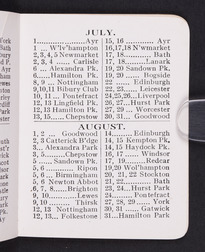 JULY.
1..............Ayr
1 ... W'lv'hampton
2, 3, 4, 5 Newmarket
2, 3, 4 ..... Carlisle
6... Alexandra Pk.
6.......Hamilton Pk.
8, 9 .... Nottingham
9,10,11 Bibury Club
10, 11 ... Pontefract
12, 13 Lingfield Pk.
12, 13 Hamilton Pk.
13, 15.....Chepstow
15, 16 ..........Ayr
16,17,18 N'wmarket
17, 18..........Bath
17, 18........Lanark
19, 20 Sandown Pk.
19, 20 ...... Bogside
22..........Edinburgh
23..........Leicester
24,25,26.. Liverpool
26, 27..Hurst Park
27, 29 .. Worcester
30, 31.... Goodwood
AUGUST.
1, 2 ... Goodwood
2, 3 Catterick B'dge
3.. Alexandra Park
3, 5........Chepstow
5 ..... Sandown Pk.
5, 6 .......... Ripon
5, 6 .. Birmingham
5, 6 Newton Abbot
6, 7, 8..... Brighton
9, 10..........Lewes
9, 10 ....... Thirsk
12, 13 Nottingham
12, 13.. Folkestone
14........Edinburgh
14, 15 Kempton Pk.
14, 15 Haydock Pk.
16, 17 ..... Windsor
17, 19....... Redcar
19,20 Wol'hampton
20, 21, 22 Stockton
21, 22.........Bath
23, 24..Hurst Park
24........Pontefract
27, 28, 29 .... York
30, 31 .... Gatwick
31...Hamilton Park